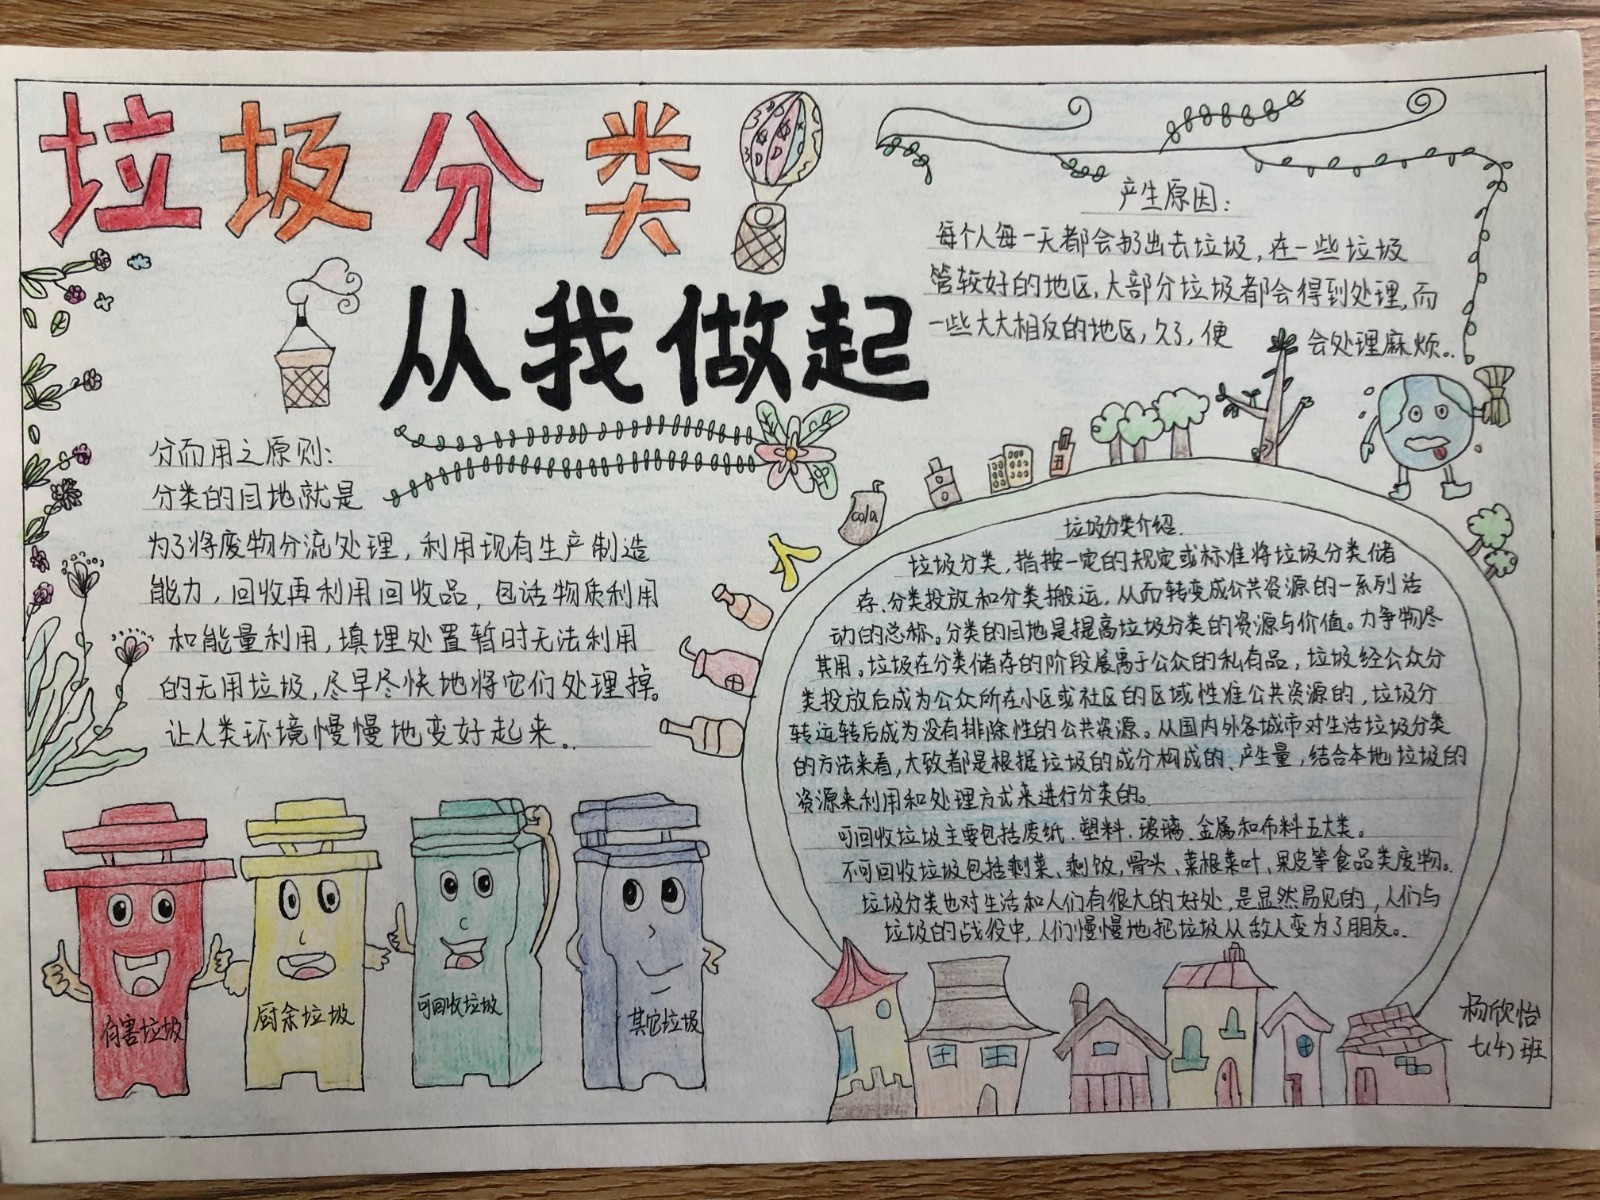 垃圾分类
从我做起
产生原因：
每个人每一天都会扔出去垃圾，在一些垃圾
管较好的地区，大部分垃圾都会得到处理，而
一些大大相反的地区，久了，便会处理麻烦。
分而用之原则：
分类的目地就是
为了将废物分流处理，利用现有生产制造
能力，回收再利用回收品，包括物质利用
和能量利用，填埋处置暂时无法利用
的无用垃圾，尽早尽快地将它们处理掉。
让人类环境慢慢地变好起来。
cola
垃圾分类介绍
垃圾分类，指按一定的规定或标准将垃圾分类储
存、分类投放和分类搬运，从而转变成公共资源的一系列活
动的总称。分类的目地是提高垃圾分类的资源与价值。力争物尽
其用。垃圾在分类储存的阶段属于公众的私有品，垃圾经公众分
类投放后成为公众所在小区或社区的区域性准公共资源的，垃圾分
转运转后成为没有排除性的公共资源。从国内外各城市对生活垃圾分类
的方法来看，大致都是根据垃圾的成分构成的、产生量，结合本地垃圾的
资源来利用和处理方式来进行分类的。
可回收垃圾主要包括废纸、塑料、玻璃、金属和布料五大类。
不可回收垃圾包括剩菜、剩饭，骨头、菜根菜叶、果皮等食品类废物。
垃圾分类也对生活和人们有很大的好处，是显然易见的，人们与
垃圾的战役中，人们慢慢地把垃圾从敌人变为了朋友。
有害垃圾
厨余垃圾
可回收垃圾
其它垃圾
杨欣怡
七(4)班